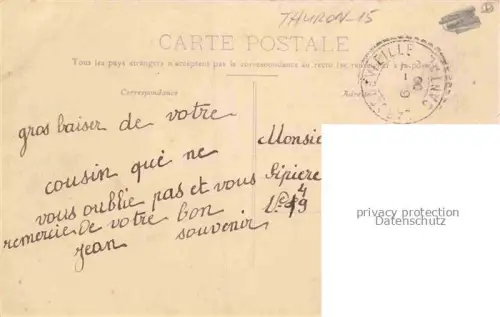 THURON_15
CARTE POSTALE
Tous les pays étrangers n'acceptent pas la correspondance au recto
Correspondance
gros baiser de votre
cousin que ne
vous oublie pas et vous
remercie de votre bon
souvenir
jean
Monsie
privacy protection
Datenschutz